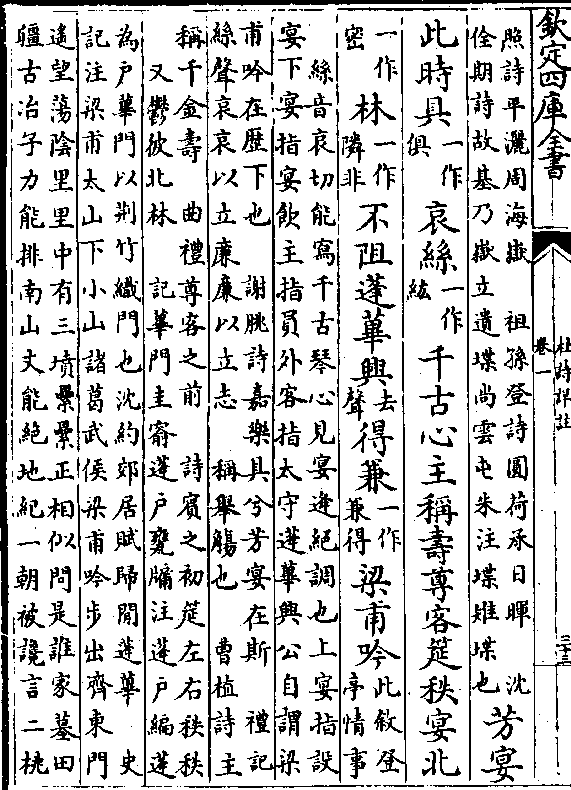 欽定四庫全書
杜詩詳註
卷一
三十三
照詩平灑周海嶽　祖孫登詩圓荷承日暉　沈
佺期詩故基乃嶽立遺堞尚雲屯朱注堞雉堞也
芳宴
此時具一作俱哀絲一作絃千古心主稱壽尊客筵秩宴北
一作密林一作隣非不阻蓬蓽興去聲得兼一作兼得梁甫吟此敘登亭情事
絲音哀切能寫千古琴心見宴逢絶調也上宴指設
宴下宴指宴飲主指員外客指太守蓬蓽興公自謂梁
甫吟在歴下也　謝朓詩嘉樂具兮芳宴在斯　禮記
絲聲哀哀以立廉廉以立志　稱舉觴也　曹植詩主
稱千金壽　曲禮尊客之前　詩賓之初筵左右秩秩
又鬱彼北林　記蓽門圭窬蓬戶甕牖注蓬戶編蓬
為戶蓽門以荆竹織門也沈約郊居賦歸閒蓬蓽　史
記注梁甫太山下小山諸葛武侯梁甫吟步出齊東門
遙望蕩陰里里中有三墳纍纍正相似問是誰家墓田
疆古冶子力能排南山文能絶地紀一朝被讒言二桃